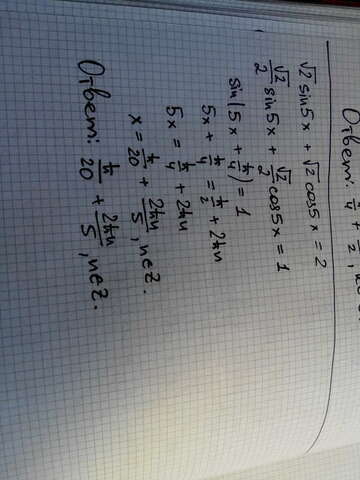 Ответ: π/4 +
√2 sin5x + √2 cos5x = 2
√2/2 sin5x + √2/2 cos5x = 1
sin(5x + π/4) = 1
5x + π/4 = π/2 + 2πn
5x = π/4 + 2πn
x = π/20 + 2πn/5, n∈Z.
Ответ: π/20 + 2πn/5, n∈Z.